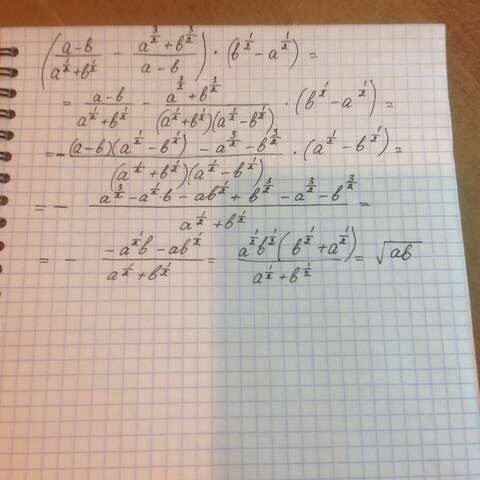 ((a-b)/(a^(1/2)+b^(1/2)) - (a^(3/2)+b^(3/2))/(a-b)) · (b^(1/2)-a^(1/2)) =
= (a-b)/(a^(1/2)+b^(1/2)) - (a^(3/2)+b^(3/2))/((a^(1/2)+b^(1/2))(a^(1/2)-b^(1/2))) · (b^(1/2)-a^(1/2)) =
= - ((a-b)(a^(1/2)-b^(1/2)) - a^(3/2) - b^(3/2))/((a^(1/2)+b^(1/2))(a^(1/2)-b^(1/2))) · (a^(1/2)-b^(1/2)) =
= - (a^(3/2) - a^(1/2)b - ab^(1/2) + b^(3/2) - a^(3/2) - b^(3/2))/(a^(1/2)+b^(1/2)) =
= - (-a^(1/2)b - ab^(1/2))/(a^(1/2)+b^(1/2)) = (a^(1/2)b^(1/2)(b^(1/2)+a^(1/2)))/(a^(1/2)+b^(1/2)) = √ab